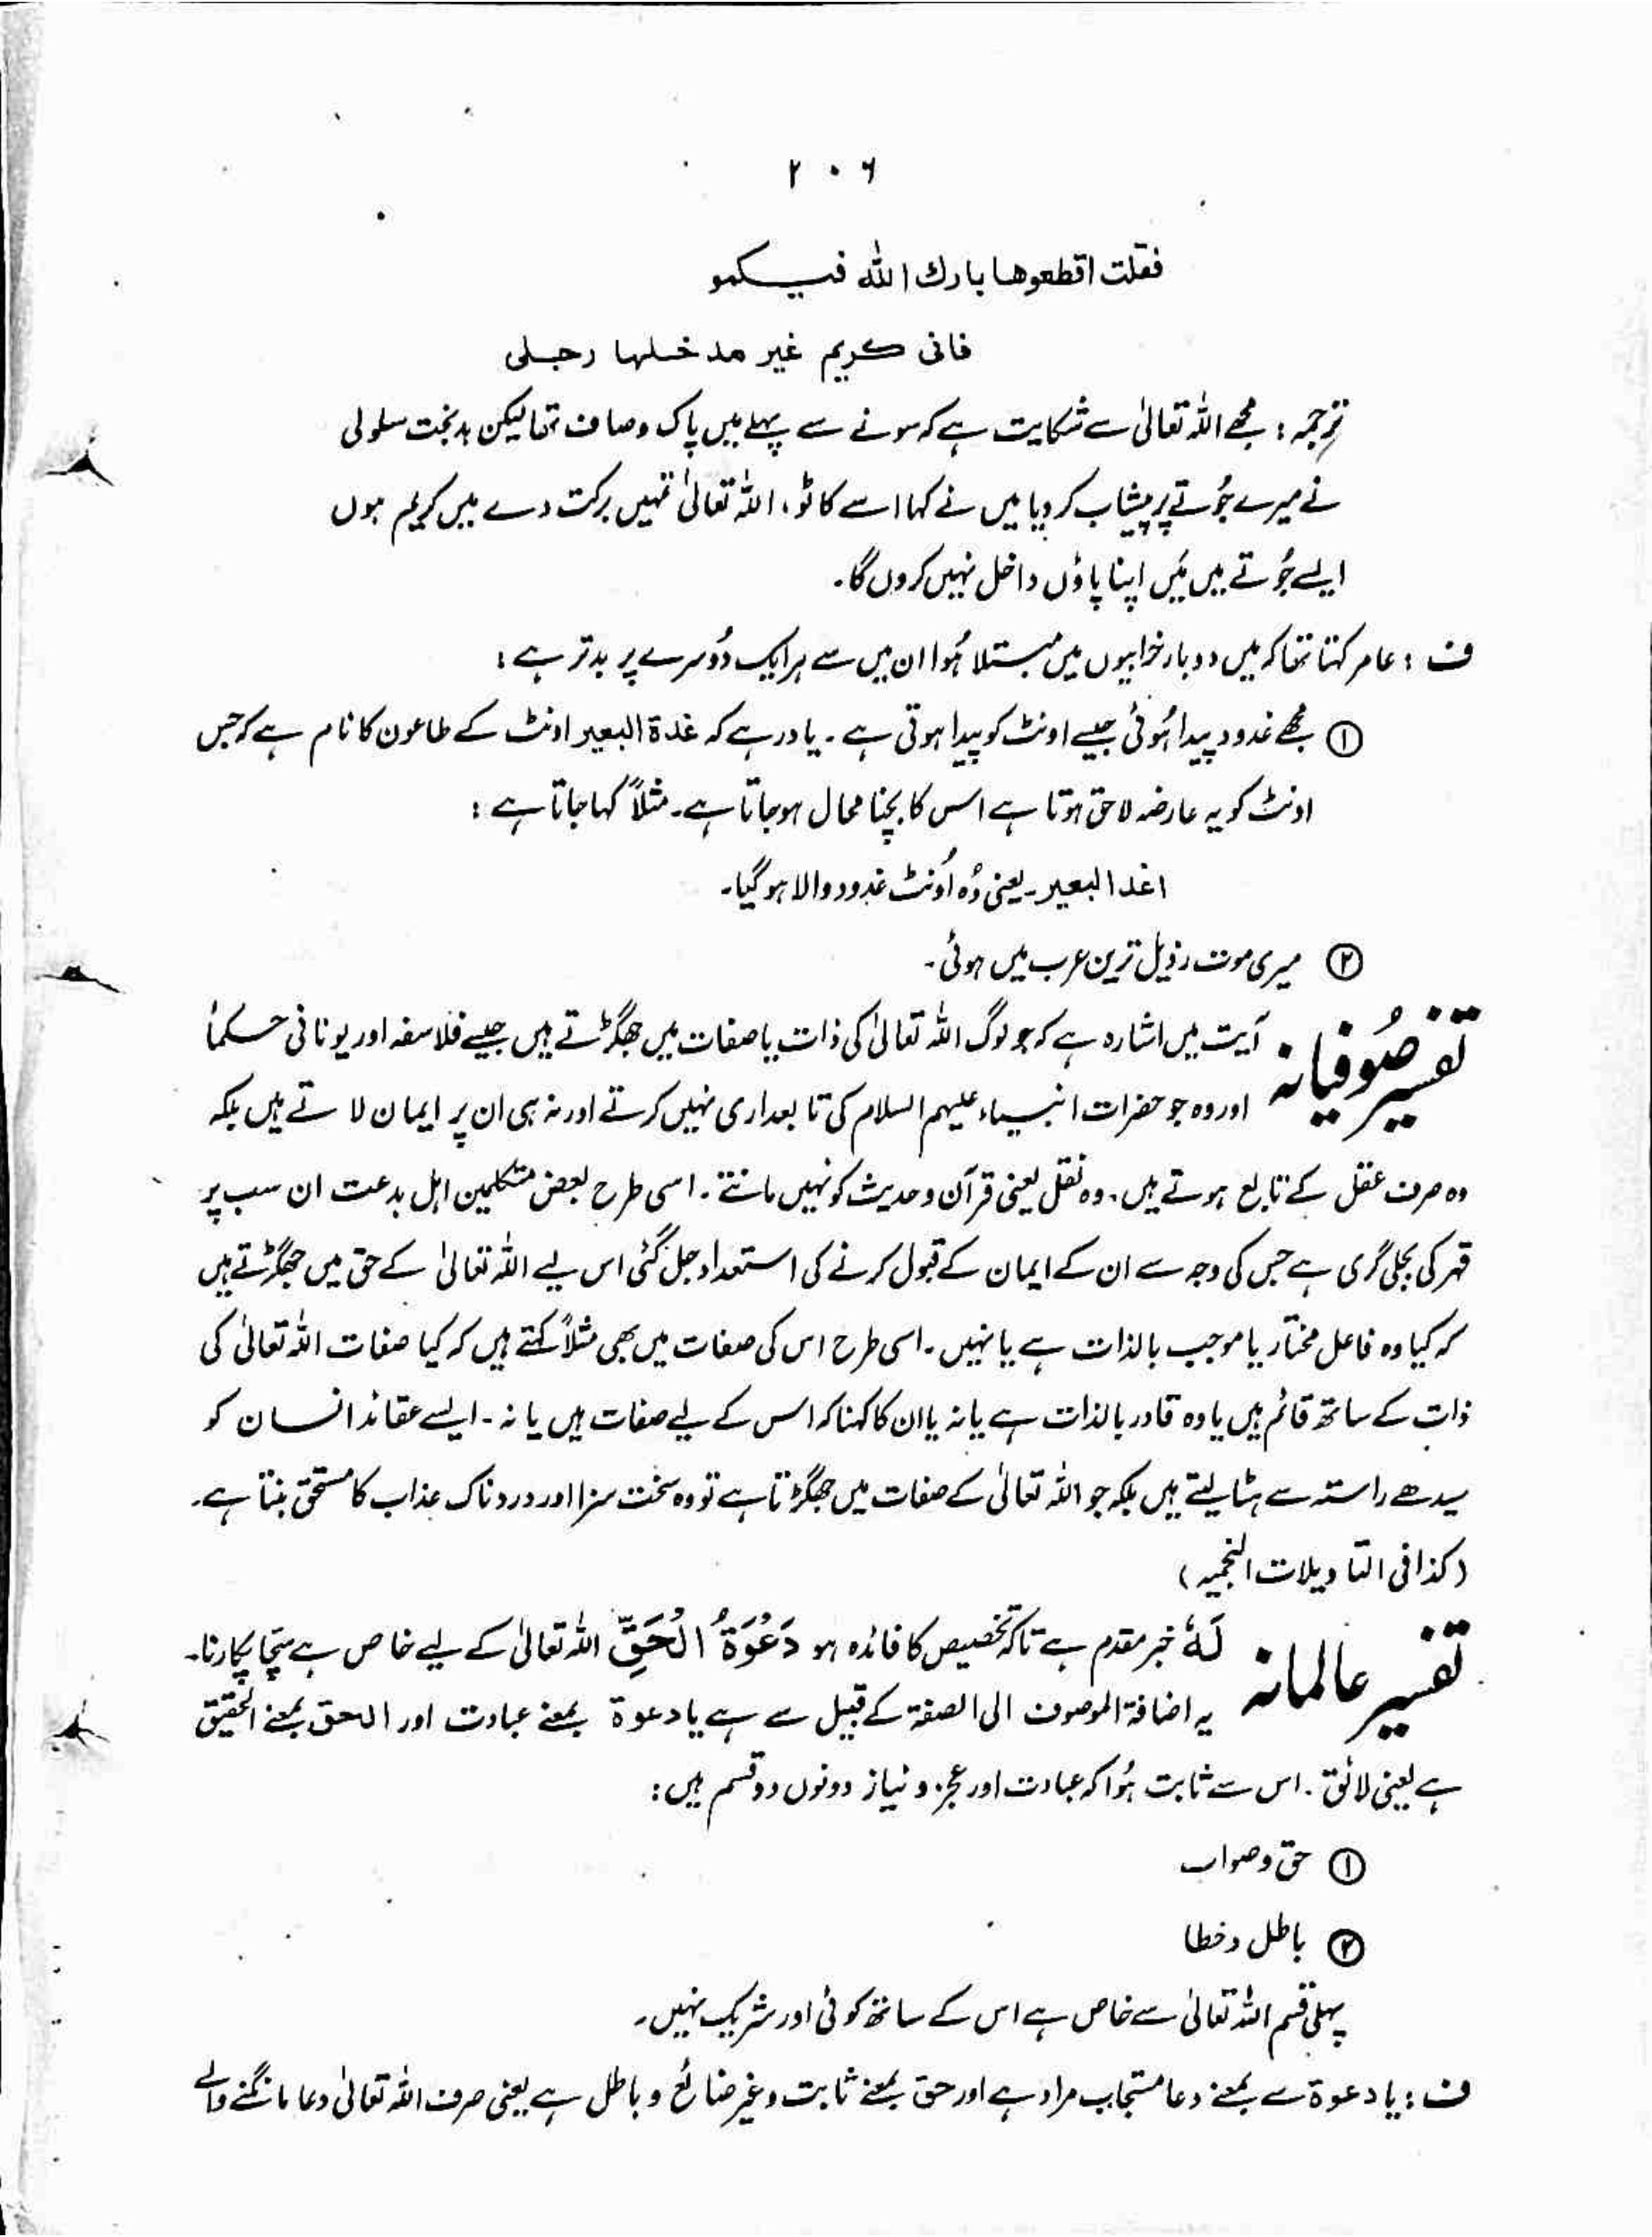 ۲۰۶
فقلت اقطعوها بارك الله فيكمو
فانى كريم غير مدخلها رجلى
ترجمہ : مجھے اللہ تعالیٰ سے شکایت ہے کہ سونے سے پہلے میں پاک و صاف تھا لیکن بدبخت سلولی
نے میرے جُوتے پر پیشاب کر دیا میں نے کہا اسے کاٹو ، اللہ تعالیٰ تمہیں برکت دے میں کریم ہوں
ایسے جُوتے میں مَیں اپنا پاؤں داخل نہیں کروں گا ۔
ف : عامر کہتا تھا کہ میں دوبار خرابیوں میں مبتلا ہُوا ان میں سے ہر ایک دُوسرے پر بدتر ہے :
① مجھے غدود پیدا ہُوئی جیسے اونٹ کو پیدا ہوتی ہے ۔ یاد رہے کہ غدة البعیر اونٹ کے طاعون کا نام ہے کہ جس
اونٹ کو یہ عارضہ لاحق ہوتا ہے اس کا بچنا محال ہو جاتا ہے ۔ مثلاً کہا جاتا ہے :
اغد البعیر ۔ یعنی وُہ اُونٹ غدود والا ہو گیا ۔
② میری موت رذیل ترین عرب میں ہوئی ۔
تفسیر صُوفیانہ آیت میں اشارہ ہے کہ جو لوگ اللہ تعالیٰ کی ذات یا صفات میں جھگڑتے ہیں جیسے فلاسفہ اور یونانی حکمأ
اور وہ جو حضرات انبیاء علیہم السلام کی تابعداری نہیں کرتے اور نہ ہی ان پر ایمان لاتے ہیں بلکہ
وہ صرف عقل کے تابع ہوتے ہیں ، وہ نقل یعنی قرآن و حدیث کو نہیں مانتے ۔ اسی طرح بعض متکلمین اہل بدعت ان سب پر
قہر کی بجلی گری ہے جس کی وجہ سے ان کے ایمان کے قبول کرنے کی استعداد جل گئی اس لیے اللہ تعالیٰ کے حق میں جھگڑتے ہیں
کہ کیا وہ فاعل مختار یا موجب بالذات ہے یا نہیں ۔ اسی طرح اس کی صفات میں بھی مثلاً کہتے ہیں کہ کیا صفات اللہ تعالیٰ کی
ذات کے ساتھ قائم ہیں یا وہ قادر بالذات ہے یا نہ یا ان کا کہنا کہ اس کے لیے صفات ہیں یا نہ ۔ ایسے عقائد انسان کو
سیدھے راستہ سے ہٹا لیتے ہیں بلکہ جو اللہ تعالیٰ کے صفات میں جھگڑتا ہے تو وہ سخت سزا اور دردناک عذاب کا مستحق بنتا ہے ۔
(کذا فی التاویلات النجمیہ)
تفسیر عالمانہ لَهٗ خبر مقدم ہے تاکہ تخصیص کا فائدہ ہو دَعْوَةُ الْحَقِّ اللہ تعالیٰ کے لیے خاص ہے سچا پکارنا ۔
یہ اضافۃ الموصوف الی الصفۃ کے قبیل سے ہے یا دعوة بمعنے عبادت اور الحق بمعنے الحقیق
ہے یعنی لائق ۔ اس سے ثابت ہُوا کہ عبادت اور عجز و نیاز دونوں دو قسم ہیں :
① حق و صواب
② باطل و خطا
پہلی قسم اللہ تعالیٰ سے خاص ہے اس کے ساتھ کوئی اور شریک نہیں ۔
ف : یا دعوة سے بمعنے دعا مستجاب مراد ہے اور حق بمعنے ثابت و غیر ضائع و باطل ہے یعنی صرف اللہ تعالیٰ دعا مانگنے والے